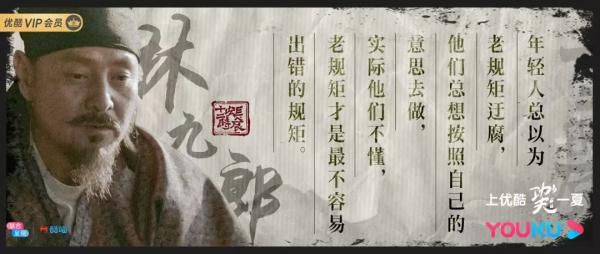 优酷VIP会员
林九郎
年轻人总以为
老规矩迂腐，
他们总想按照自己的
意思去做，
实际他们不懂，
老规矩才是最不容易
出错的规矩。
上优酷 一夏
YOUKU
酷喵